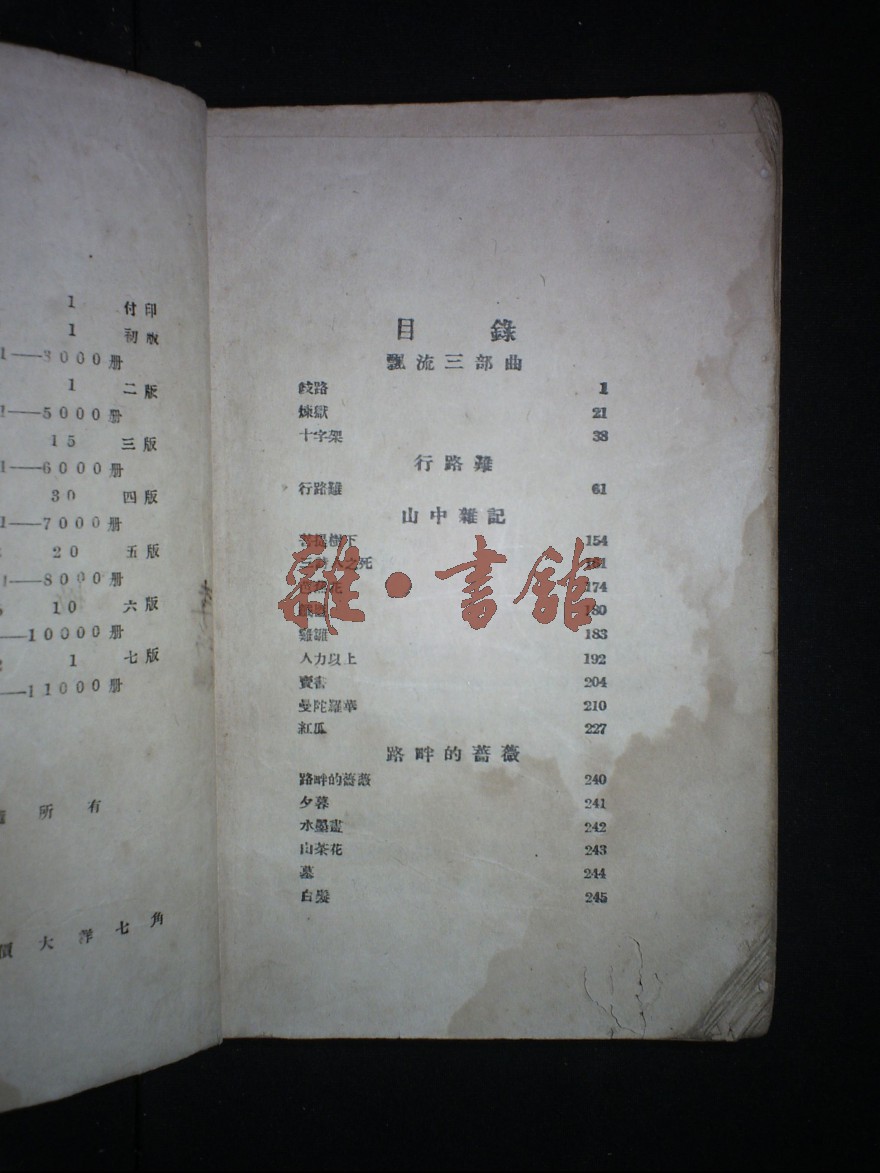 1 付印
1 初版
1——3000册
1 二版
1——5000册
15 三版
1——6000册
30 四版
1——7000册
20 五版
1——8000册
10 六版
——10000册
1 七版
——11000册
所有
價大洋七角
目錄
飄流三部曲
歧路 1
煉獄 21
十字架 38
行路難
行路難 61
山中雜記
菩提樹下 154
之死 161
花 174
180
雞雛 183
人力以上 192
賣書 204
曼陀羅華 210
紅瓜 227
路畔的薔薇
路畔的薔薇 240
夕暮 241
水墨畫 242
山茶花 243
墓 244
白髮 245
雜·書館